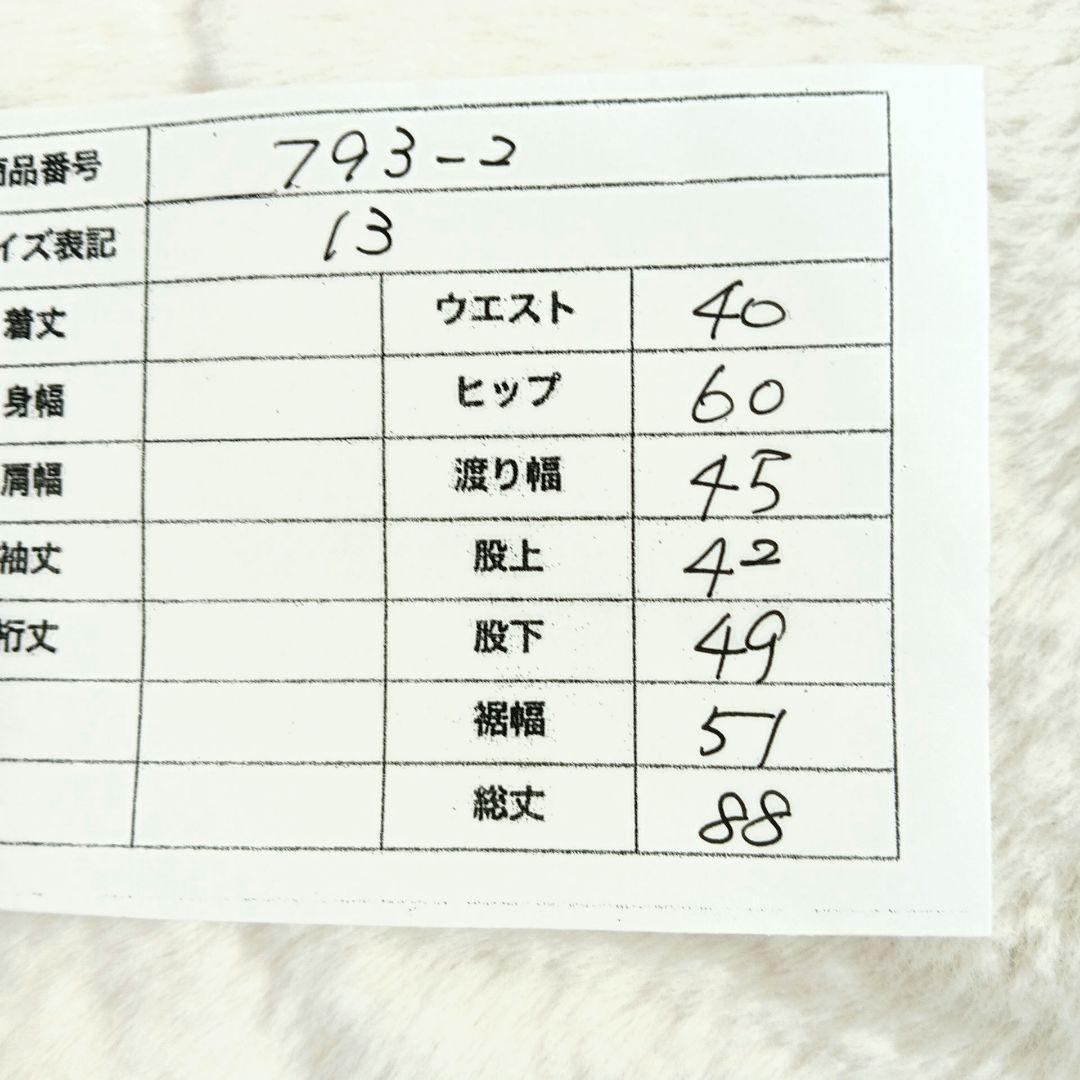 商品番号 793-2
イズ表記 13
着丈 ウエスト 40
身幅 ヒップ 60
肩幅 渡り幅 45
袖丈 股上 42
裄丈 股下 49
裾幅 51
総丈 88